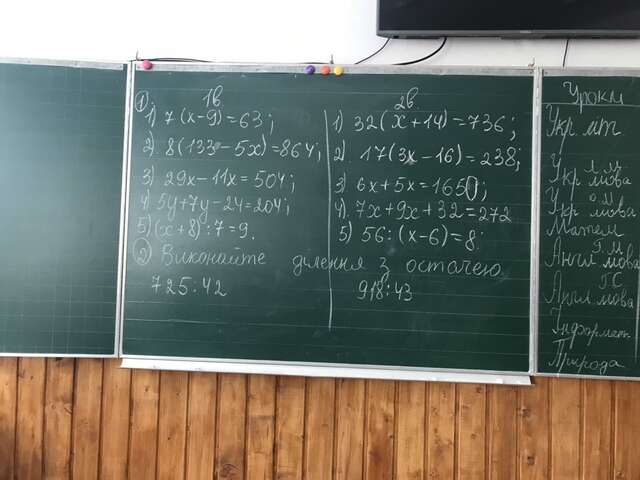 1в.
① 1) 7(x-9)=63;
2) 8(133-5x)=864;
3) 29x-11x=504;
4) 5y+7y-24=204;
5) (x+8):7=9.
2в.
1) 32(x+14)=736;
2). 17(3x-16)=238;
3) 6x+5x=1650;
4). 7x+9x+32=272
5) 56:(x-6)=8.
② Виконайте ділення з остачею
725:42
918:43
Уроки
Укр. літ.
Укр. мова
Укр. мова
Матем
Англ. мова
Англ. мова
Інформат.
Природа